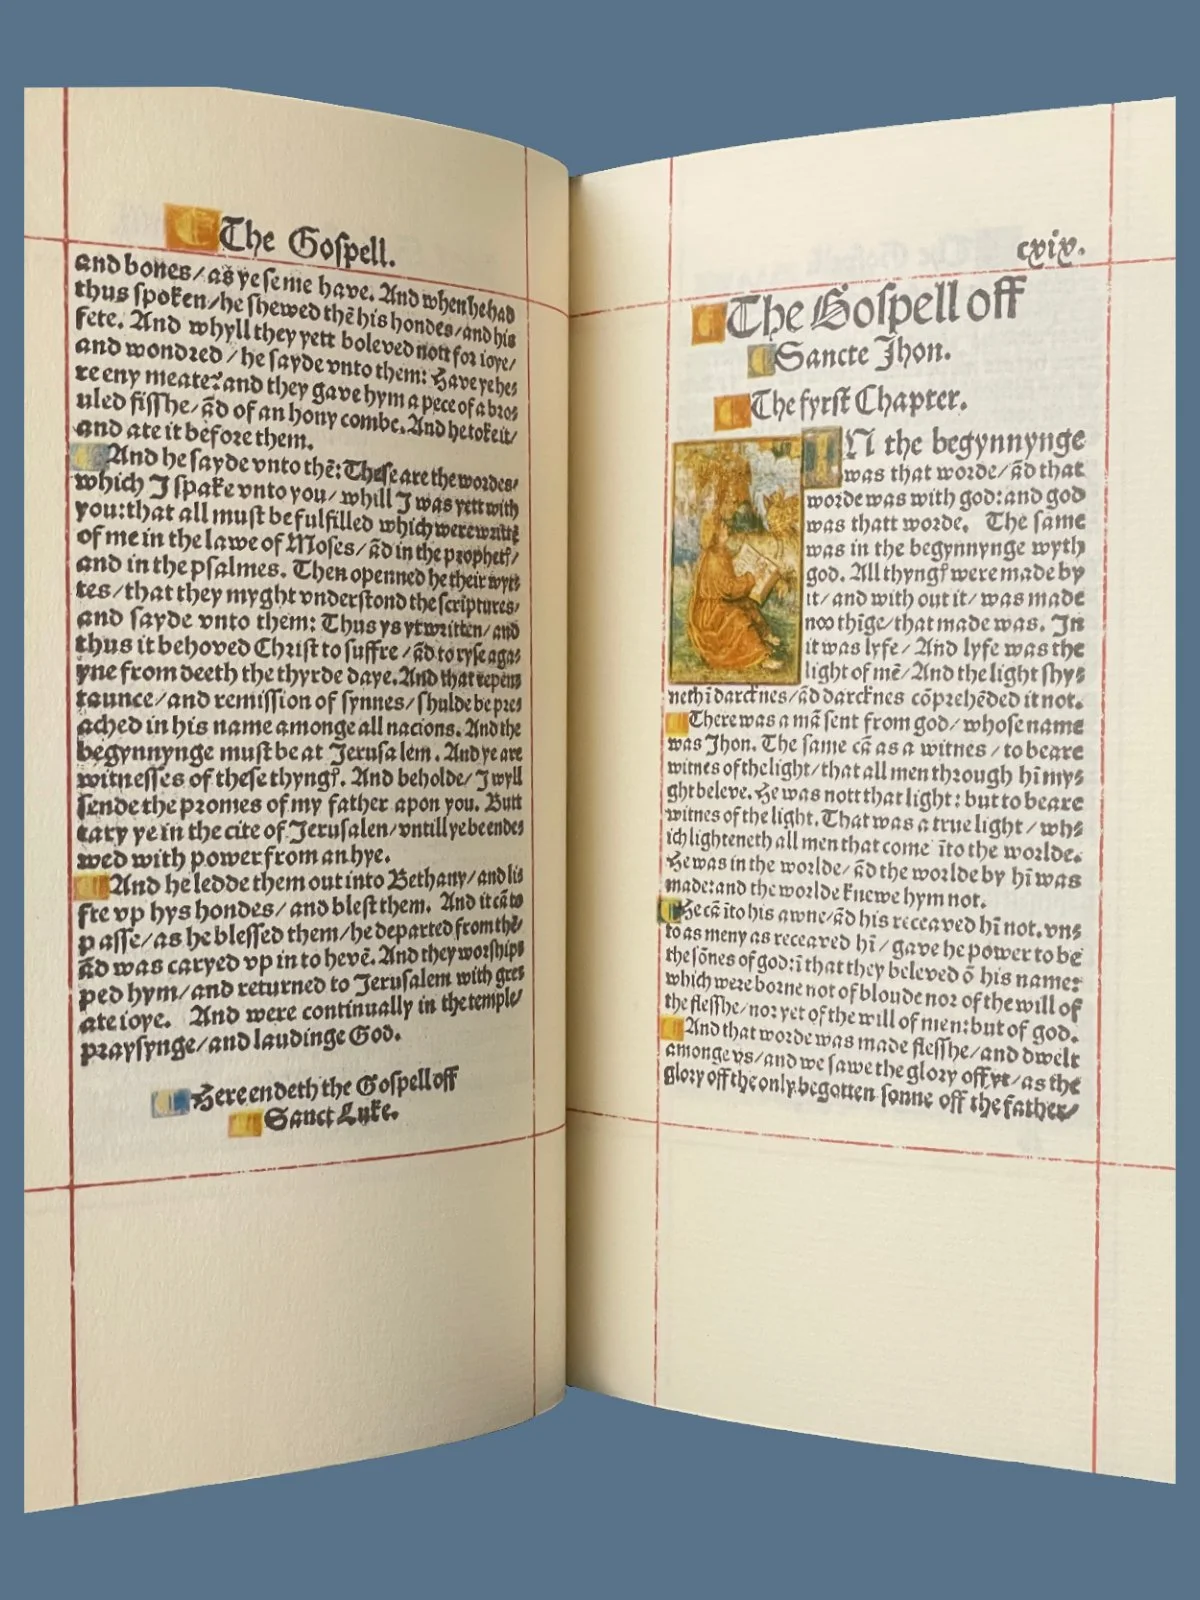 The Goſpell.
and bones/as ye ſe me have. And when he had
thus ſpoken/he ſhewed thē his hondes/and his
fete. And whyll they yett boleved nott for ioye/
and wondred/he ſayde vnto them: Have ye he⸗
re eny meate? and they gave hym a pece of a bro⸗
uled fiſſhe/ād of an hony combe. And he toke it/
and ate it before them.
And he ſayde vnto thē: Theſe are the wordes/
which I ſpake vnto you/whill I was yett with
you: that all muſt be fulfilled which were writtē
of me in the lawe of Moſes/ād in the prophetꝭ/
and in the pſalmes. Then openned he their wyt⸗
tes/that they myght vnderſtond the ſcriptures/
and ſayde vnto them: Thus ys yt written/and
thus it behoved Chriſt to ſuffre/ād to ryſe aga⸗
yne from deeth the thyrde daye. And that repen⸗
taunce/and remiſſion of ſynnes/ſhulde be pre⸗
ached in his name amonge all nacions. And the
begynnynge muſt be at Jeruſa lem. And ye are
witneſſes of theſe thyngꝭ. And beholde/I wyll
ſende the promes of my father apon you. Butt
tary ye in the cite of Jeruſalen/vntill ye be ende⸗
wed with power from an hye.
And he ledde them out into Bethany/and lis
fte vp hys hondes/and bleſt them. And it cā to
p aſſe/as he bleſſed them/he departed from thē/
ād was caryed vp in to hevē. And they worſhip⸗
ped hym/and returned to Jeruſalem with gre⸗
ate ioye. And were continually in the temple/
prayſynge/and laudinge God.
Here endeth the Goſpell off
Sanct Luke.
cxix.
The Goſpell off
Sancte Jhon.
The fyrſt Chapter.
IN the begynnynge
was that worde/ād that
worde was with god: and god
was thatt worde. The ſame
was in the begynnynge wyth
god. All thyngꝭ were made by
it/and with out it/was made
noo thīge/that made was. In
it was lyfe/And lyfe was the
light of mē/And the light ſhy⸗
neth ī darcknes/ād darcknes cōprehēded it not.
There was a mā ſent from god/whoſe name
was Jhon. The ſame cā as a witnes/to beare
witnes of the light/that all men through hī my⸗
ght beleve. He was nott that light: but to beare
witnes of the light. That was a true light/wh⸗
ich lighteneth all men that come īto the worlde.
He was in the worlde/ād the worlde by hī was
made: and the worlde knewe hym not.
He cā īto his awne/ād his receaved hī not. vn⸗
to as meny as receaved hī/gave he power to be
the ſōnes of god: ī that they beleved ō his name:
which were borne not of bloude nor of the will of
the fleſſhe/nor yet of the will of men: but of god.
And that worde was made fleſſhe/and dwelt
amonge vs/and we ſawe the glory off yt/as the
glory off the only begotten ſonne off the father/